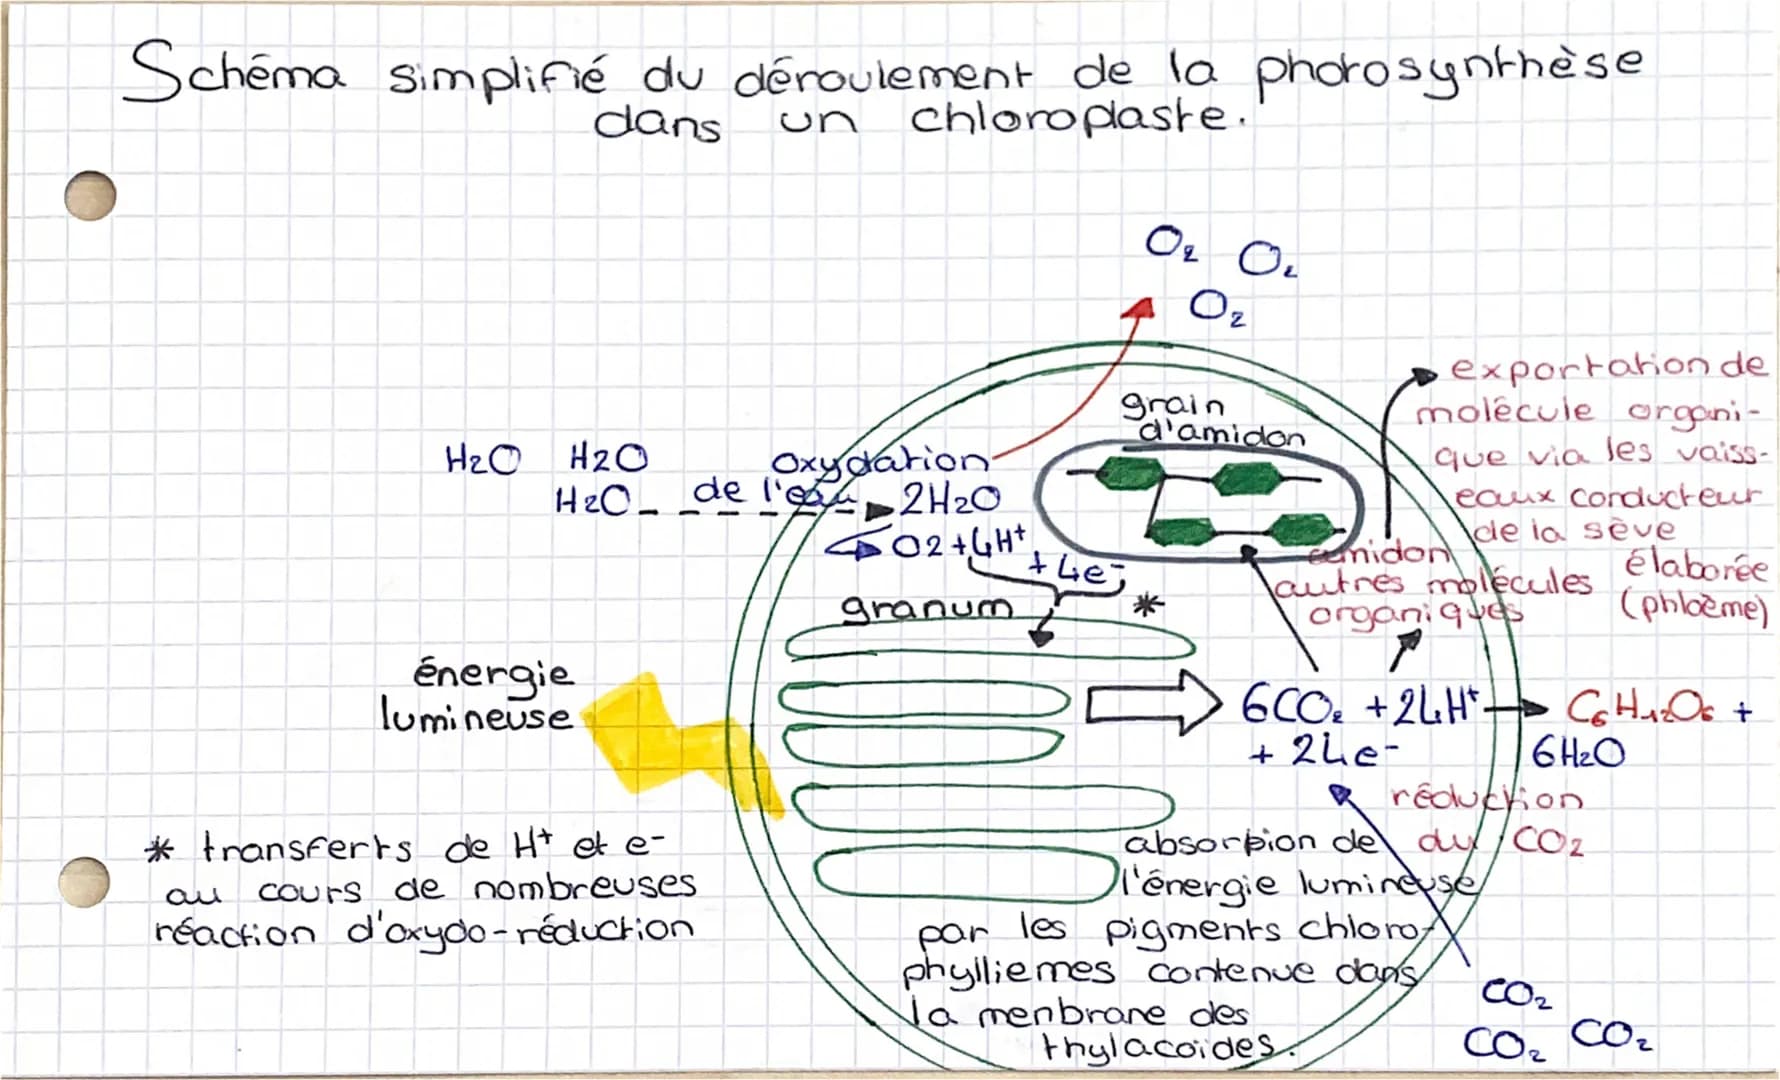 Schéma simplifié du déroulement de la photosynthèse
dans un chloroplaste.
O2 O2
O2
exportation de
molécule organi-
que via les vaiss-
eaux conducteur
de la sève
élaborée
(phloème)
grain
d'amidon
H2O H2O
H2O
oxydation
de l'eau
2H2O
O2+4H+
+4e-
amidon
autres molécules
organiques
granum *
énergie
lumineuse
6CO2 +24H+
+ 24e-
C6H12O6 +
6H2O
réduction
du CO2
* transferts de H+ et e-
au cours de nombreuses
réaction d'oxydo-réduction
absorption de
l'énergie lumineuse
par les pigments chloro-
phylliemes contenue dans
la menbrane des
thylacoïdes.
CO2
CO2 CO2